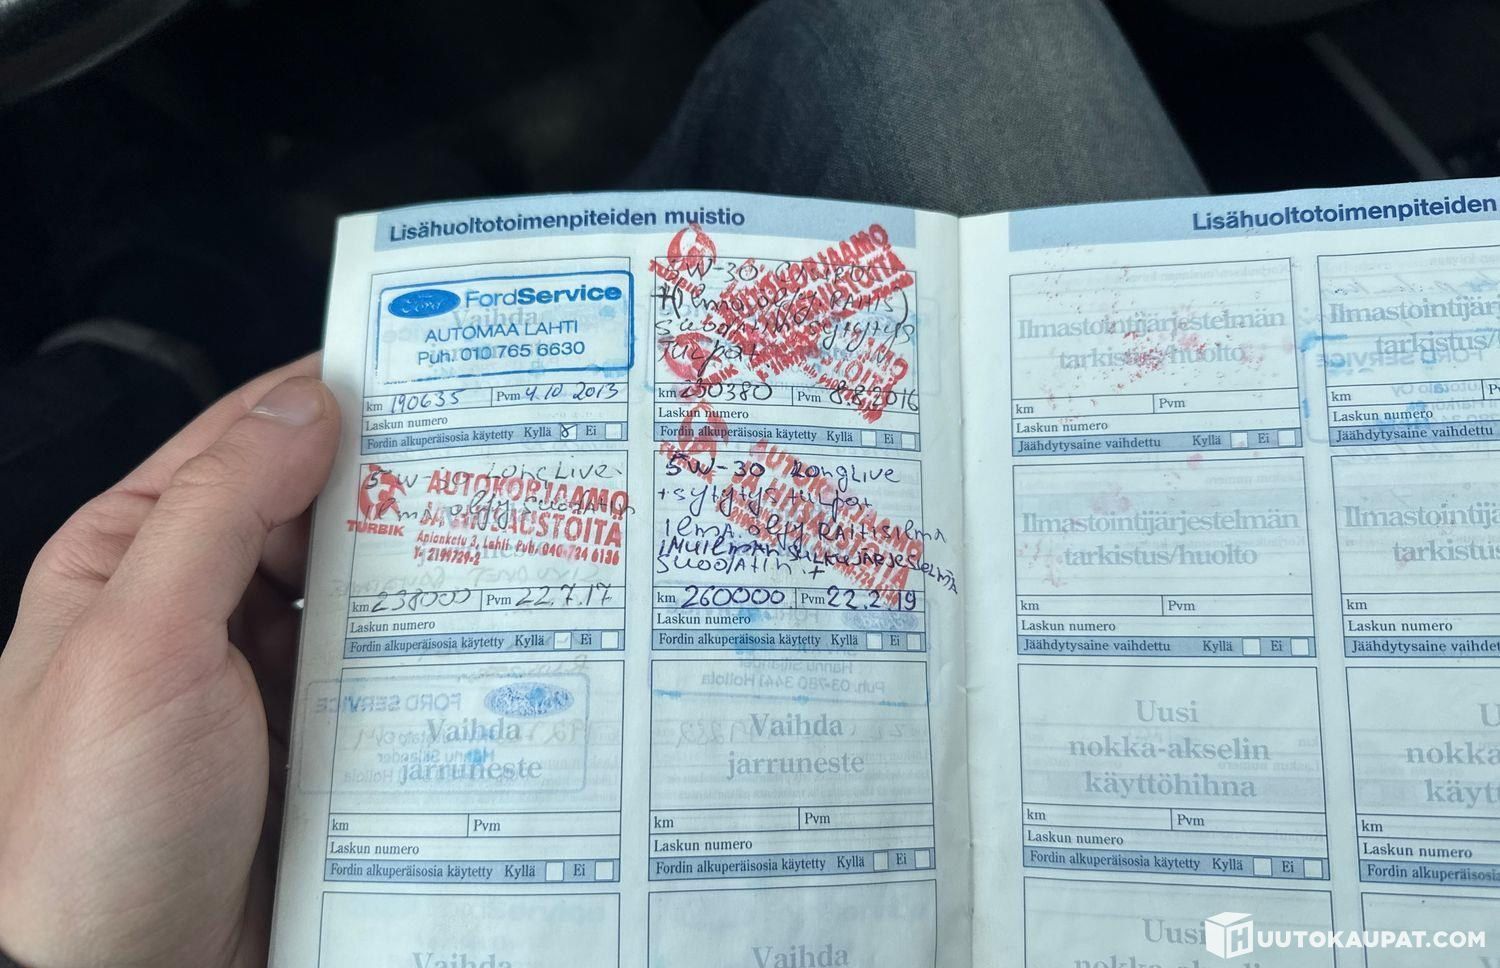 Lisähuoltotoimenpiteiden muistio
Ford FordService
AUTOMAA LAHTI
Puh. 010 765 6630
km 190635 Pvm 4.10 2013
Laskun numero
Fordin alkuperäisosia käytetty Kyllä Ei
5W-30
+(ilma, öljy, RAITIS)
SuodAtin sytytys
Tulpat
AUTOKORJAAMO
km 230380 Pvm 8.8.2016
Laskun numero
Fordin alkuperäisosia käytetty Kyllä Ei
5W-30 LongLive
ilmA öljy suodAtin
TURBIK
AUTOKORJAAMO
JA VAIHTAUSTOITA
Lahti Puh. 040-724 6136
Y- 2199729-2
km 238000 Pvm 22.7.17
Laskun numero
Fordin alkuperäisosia käytetty Kyllä Ei
5W-30 LongLive
+ sytytystulpat
ilmA öljy RAitisilma
SuodAtin +
km 260000 Pvm 22.2.19
Laskun numero
Fordin alkuperäisosia käytetty Kyllä Ei
Vaihda
jarruneste
km Pvm
Laskun numero
Fordin alkuperäisosia käytetty Kyllä Ei
Vaihda
jarruneste
km Pvm
Laskun numero
Fordin alkuperäisosia käytetty Kyllä Ei
Vaihda
Vaihda
Lisähuoltotoimenpiteiden
Ilmastointijärjestelmän
tarkistus/huolto
km Pvm
Laskun numero
Jäähdytysaine vaihdettu Kyllä Ei
km
Laskun numero
Jäähdytysaine vaihdettu
Ilmastointijärjestelmän
tarkistus/huolto
km Pvm
Laskun numero
Jäähdytysaine vaihdettu Kyllä Ei
km
Laskun numero
Jäähdytysaine vaihdettu
Uusi
nokka-akselin
käyttöhihna
km Pvm
Laskun numero
Fordin alkuperäisosia käytetty Kyllä Ei
km
Laskun numero
Uusi
HUUTOKAUPAT.COM